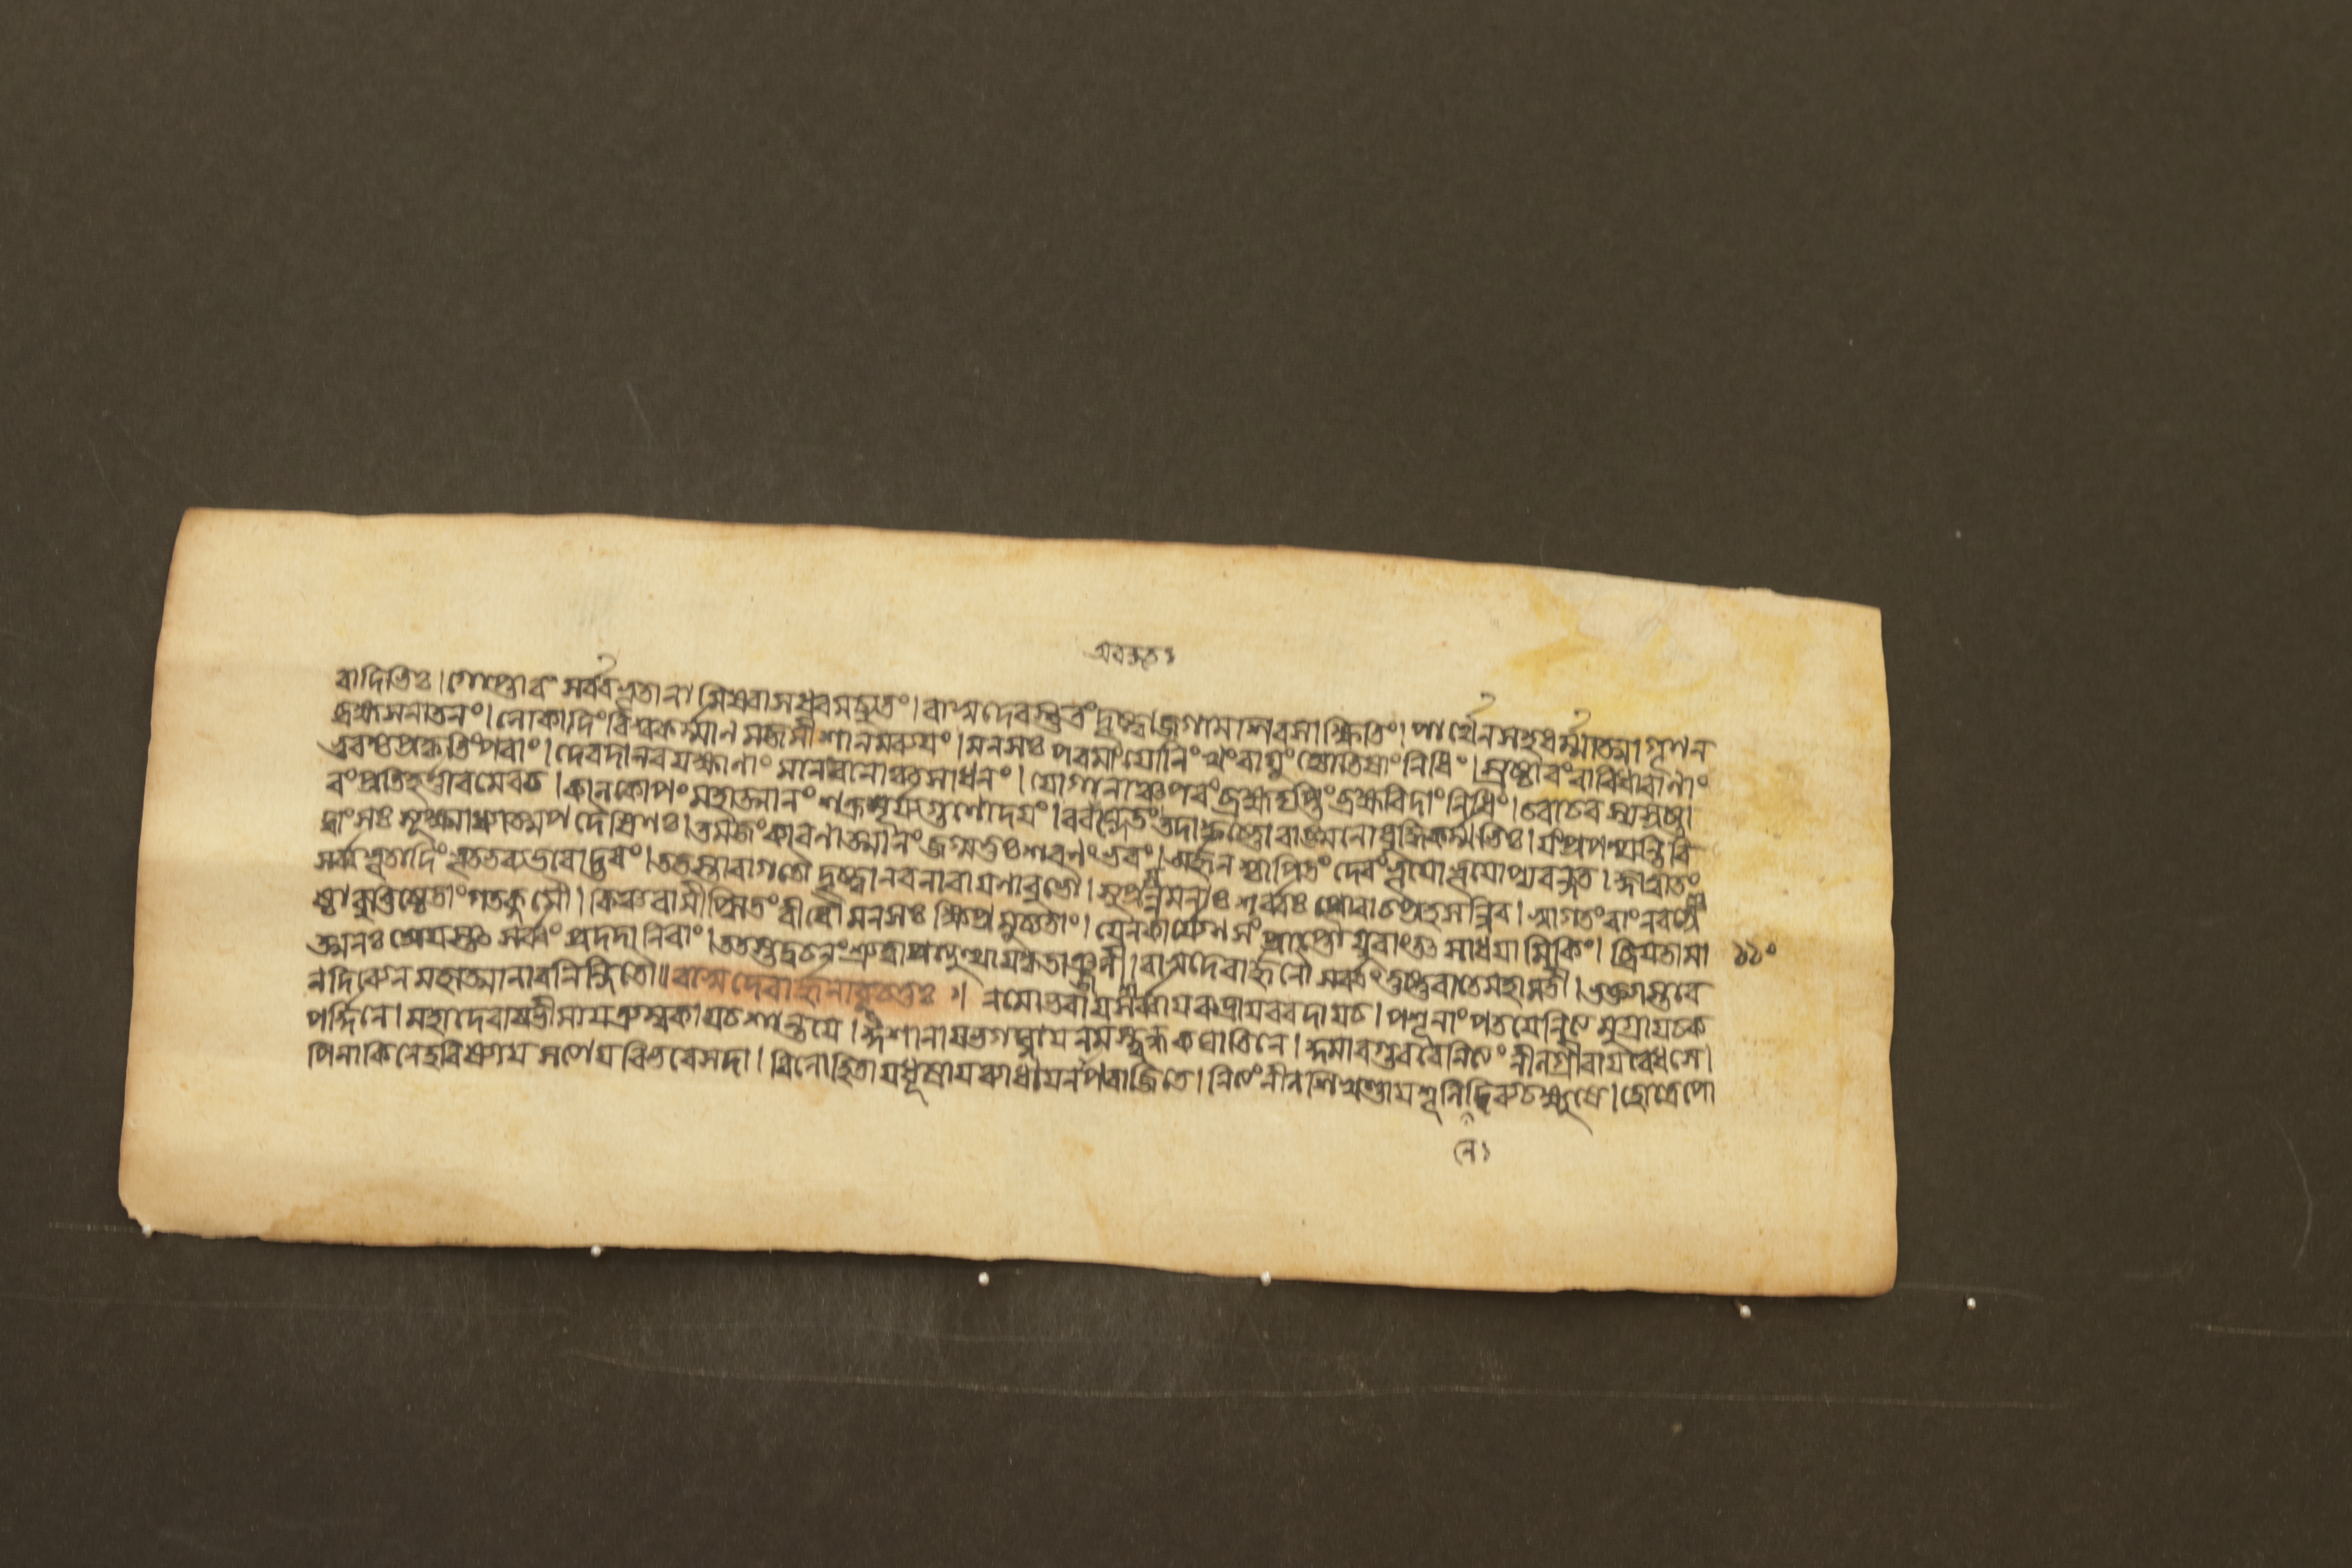 অবস্তুত ১
বাদিভিঃ। গোপ্তাবং সর্ব্বভূতানামিষ্বাসধবমচ্যুতং। বাসুদেবস্তুতং দৃষ্ট্বা জগাম শিবসা ক্ষিতিং। পার্থেন সহ ধর্ম্মাত্মা গৃণন
ব্রহ্ম সনাতনং। লোকাদিং বিশ্বকর্ম্মাণমজমীশানমব্যয়ং। মনসঃ পবমাং যোনিং খং বায়ুং জ্যোতিষাং নিধিং। স্রষ্টাবং বাবিধাবাণাং
ভুবশ্চ প্রকৃতিং পবাং। দেবদানবযক্ষাণাং মানবানাঞ্চ সাধনং। যোগানাঞ্চ পবং ব্রহ্ম দৃপ্তং ব্রহ্মবিদাং নিধিং। চবাচবস্য স্রষ্টা
বং প্রতিহর্ত্তাবমেবচ। কালকোপং মহাত্মানং শক্রসূর্য্যগুণোদয়ং। ববন্দে তং তদা কৃষ্ণো বাঙ্মনোবুদ্ধিকর্ম্মভিঃ। যং প্রপশ্যন্তি বি
দ্বাংসঃ সূক্ষ্মাধ্যাত্মপদৈষিণঃ। তমজং কাবণাত্মানং জগ্মতুঃ শবণং ভবং। অর্জ্জুনশ্চাপি তং দেবং ভূয়ো ভূয়োপ্যবন্দত। জ্ঞাত্বা তং
সর্ব্বভূতাদিং ভূতভব্যভবোদ্ভবং। ততস্তাবাগতৌ দৃষ্ট্বা নবনাবায়ণাবুভৌ। সুপ্রসন্নমনাঃ শর্ব্বঃ প্রোবাচ প্রহসন্নিব। স্বাগতং বাং নবশ্রে
ষ্ঠাবুত্তিষ্ঠেতাং গতক্লমৌ। কিঞ্চ বামীপ্সিতং বীবৌ মনসঃ ক্ষিপ্রমুচ্যতাং। যেন কার্য্যেণ সংপ্রাপ্তৌ যুবাং তৎ সাধয়ামি কিং। ব্রিয়তামা ১১০
ত্মনঃ শ্রেয়স্তৎ সর্ব্বং প্রদদানি বাং। ততস্তদ্বচনং শ্রুত্বা প্রত্যুত্থায় কৃতাঞ্জলী। বাসুদেবার্জ্জুনৌ সর্ব্বং তুষ্টুবাতে মহামতী। ভক্ত্যা স্তবে
ন দিব্যেন মহাত্মানাবনিন্দিতৌ॥ বাসুদেবার্জ্জুনাবূচতুঃ॥ নমো ভবায় সর্ব্বায় রুদ্রায় ববদায় চ। পশূনাং পতয়ে নিত্যমুগ্রায় চ ক
পর্দ্দিনে। মহাদেবায় ভীমায় ত্র্যম্বকায় চ শান্তয়ে। ঈশানায় ভগঘ্নায় নমস্ত্বন্ধকঘাতিনে। কুমাবগুববে নিত্যং নীলগ্রীবায় বেধসে।
পিনাকিনে হবিষ্যায় সত্যায় বিভবে সদা। বিলোহিতায় ধূম্রায় ব্যাধায়নপবাজিতে। নিত্যং নীলশিখণ্ডায় শূলিনে দিব্যচক্ষুষে। হোত্রে পো
নে ১